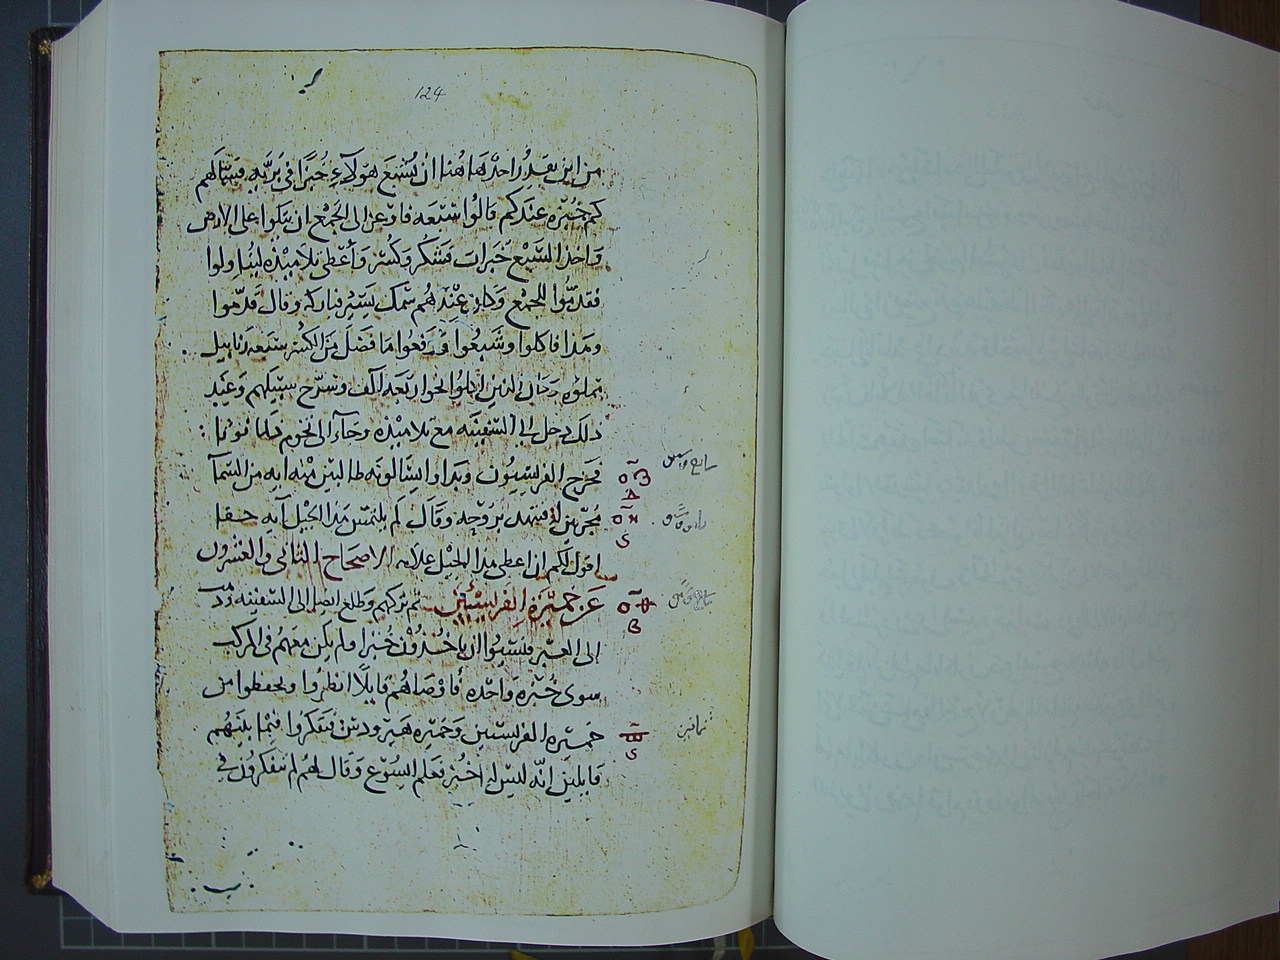 124
من اين يقدر احد هاهنا ان يشبع هولاء خبزا في بريه فسالهم
كم خبزه عندكم قالوا سبعه فاوعز الى الجمع ان يتكوا على الارض
واخذ السبع خبزات فشكر وكسر واعطى تلاميذه ليناولوا
فقدموا للجمع وكان عندهم سمك يسير فباركه وقال قدموا
وهذا فاكلوا وشبعوا ورفعوا ما فضل من الكسر سبعه زنابيل
مملوه وكان الذين اكلوا نحو اربعه الف وسرح سبيلهم وعند
ذلك دخل الى السفينه مع تلاميذه وجاء الى تخوم دلمانوثا :
فخرج الفريسيون وبداوا يسالونه طالبين منه ايه من السما
مجربين له فتنهد بروحه وقال لم يلتمس هذا الجيل آيه حقا
اقول لكم ان اعطى هذا الجيل علامه الاصحاح الثاني والعشرون
عن خميرة الفريسيين ثم تركهم وطلع ايضا الى السفينه
الى العبر فنسيوا ان ياخذون خبزا ولم يكن معهم في المركب
سوى خبزه واحده فاوصاهم قايلا انظروا وتحفظوا من
خميره الفريسيين وخميره هيرودس ففكروا فيما بينهم
قايلين انه ليس لنا خبز فعلم ايسوع وقال لهم لم تفكرون في